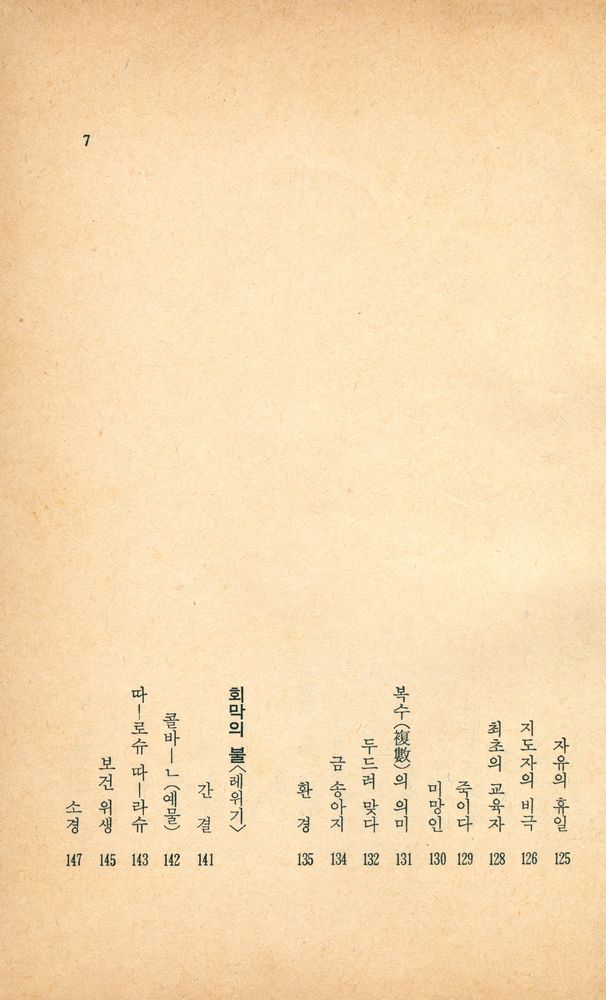 7
자유의 휴일 125
지도자의 비극 126
최초의 교육자 128
죽이다 129
미망인 130
복수(複數)의 의미 131
두드려 맞다 132
금 송아지 134
환 경 135
회막의 불〈레위기〉
간 결 141
콜바—ㄴ(예물) 142
따—로슈 따—라슈 143
보건 위생 145
소경 147